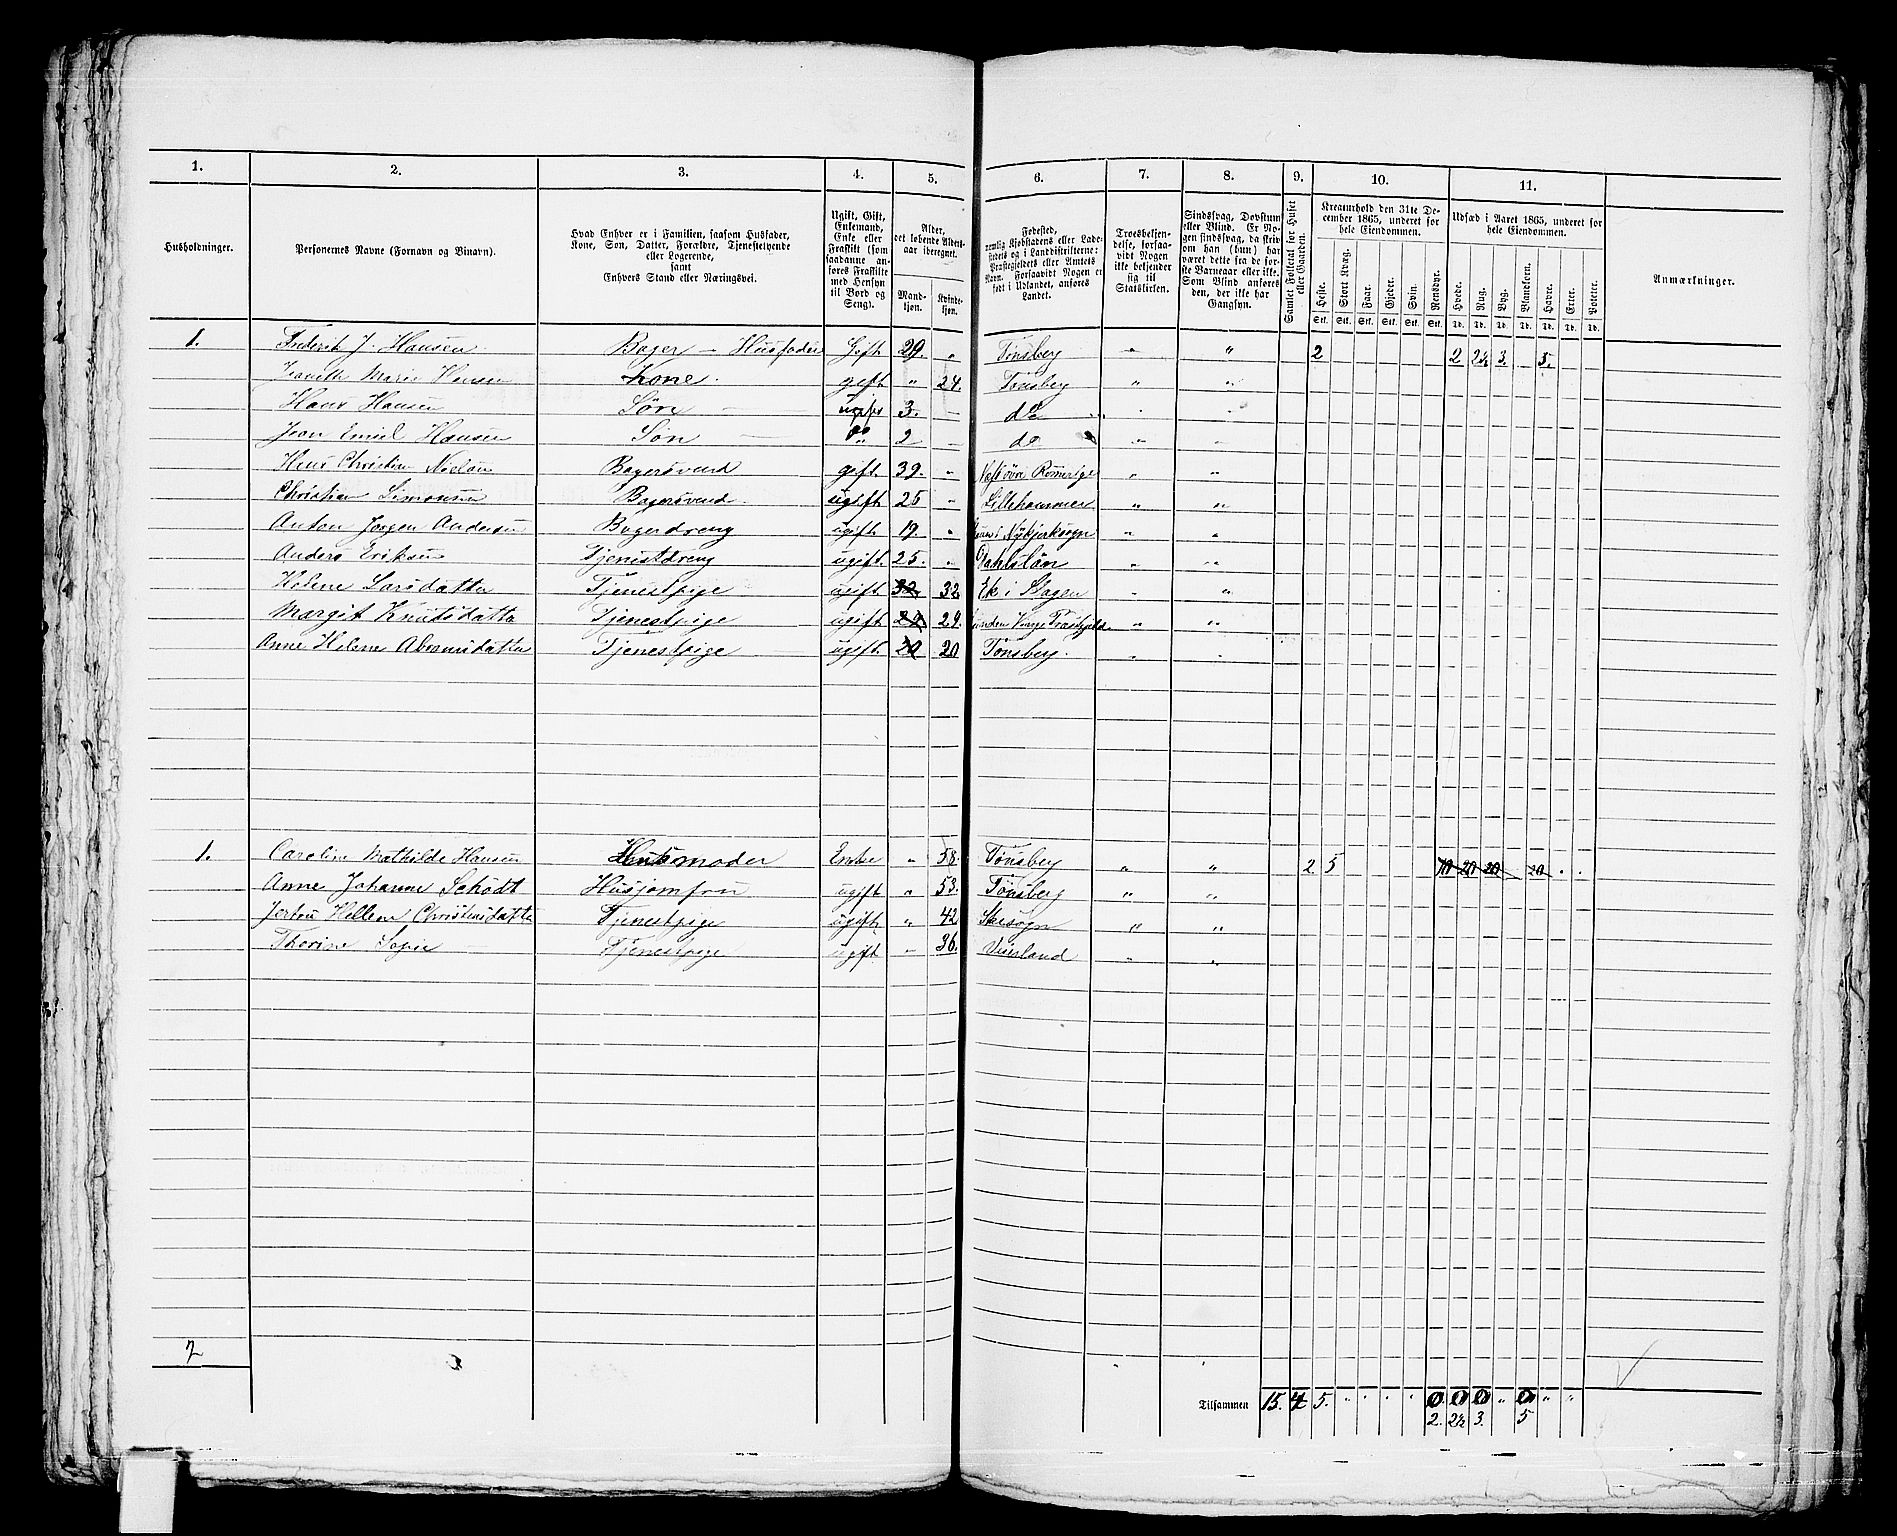 1. 2. 3. 4. 5. 6. 7. 8. 9. 10. 11.
Husholdninger.
Personernes Navne (Fornavn og Binavn).
Hvad Enhver er i Familien, saasom Husfader,
Kone, Søn, Datter, Forældre, Tjenestetyende
eller Logerende,
samt
Enhvers Stand eller Næringsvei.
Ugift, Gift,
Enkemand,
Enke eller
Fraskilt (som
saadanne an-
føres Fraskilte
med Hensyn
til Bord og
Seng).
Alder,
det løbende Alders-
aar iberegnet.
Mand-
kjøn.
Kvinde-
kjøn.
Fødested,
nemlig Kjøbstadens eller Lade-
stedets og i Landdistrikterne:
Præstegjeldets eller Amtets
Navn. Forsaavidt Nogen er
født i Udlandet, anføres
Landet.
Troesbekjen-
delse, forsaa-
vidt Nogen
ikke bekjender
sig til
Statskirken.
Sindssvag, Døvstum
eller Blind. Er No-
gen sindssvag, da skri-
ves om han (hun) har
været dette fra de før-
ste Barneaar eller ikke.
Som Blind anføres
den, der ikke har
Gangsyn.
Samlet Folketal for Huset
eller Gaarden.
Kreaturhold den 31te De-
cember 1865, underet for
hele Eiendommen.
Heste. Stort Kvæg. Faar. Gjeder. Svin. Rensdyr.
Stk. Stk. Stk. Stk. Stk. Stk.
Udsæd i Aaret 1865, underet for
hele Eiendommen.
Hvede. Rug. Byg. Blandkorn. Havre. Erter. Poteter.
Td. Td. Td. Td. Td. Td. Td.
Anmærkninger.
1. Frederik J. Hansen Bager — Husfader Gift 29. " Tønsberg " " 2 2 2½ 3. 5.
Marie Hansen Kone. gift " 24. Tønsberg " "
Hans Hansen Søn ugift 3. do
Jean Emiel Hansen Søn do 2 do
Hans Christian Nielsen Bagersvend gift. 39. " Romerige " "
Christian Simonsen Bagersvend ugift 25 " Lillehammer " "
Anton Jørgen Andersen Bagerdreng ugift 19. " Nykjerksogn " "
Anders Eriksen Tjenistdreng ugift. 25. " Dahlslån " "
Helene Larsdatter Tjenestpige ugift 32 32 Ek i Slagen " "
Margit Knutsdatter Tjenestpige ugift 29 29. " "
Anne Helene Abramsdatter Tjenestpige ugift 20 20 Tønsberg. " "
1. Caroline Mathilde Hansen Husmoder Enke " 58. Tønsberg " " 2 5 10 20 20 20
Anne Johanne Schødt Husjomfru ugift " 53. Tønsberg " "
Hellene Christensdatter Tjenestpige ugift " 42 " "
Thorine Sofie Tjenestpige ugift " 36. Veierland " "
2
Tilsammen 15. 4 5. " " " " 0 0 0 " 0 " "
2. 2½ 3. 5